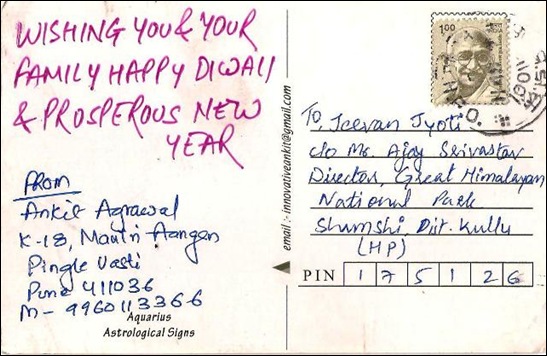 WISHING YOU & YOUR
FAMILY HAPPY DIWALI
& PROSPEROUS NEW
YEAR
FROM
Ankit Agrawal
K-18, Mautri Aangan
Pingle Vasti
Pune 411036
M- 9960113366
Aquarius
Astrological Signs
email :- innovativeankit@gmail.com
1.00
To,
Jeevan Jyoti
c/o Mr. Ajay Srivastav
Director, Great Himalayan
National Park
Shamshi Distt. Kullu
(HP)
PIN 175126